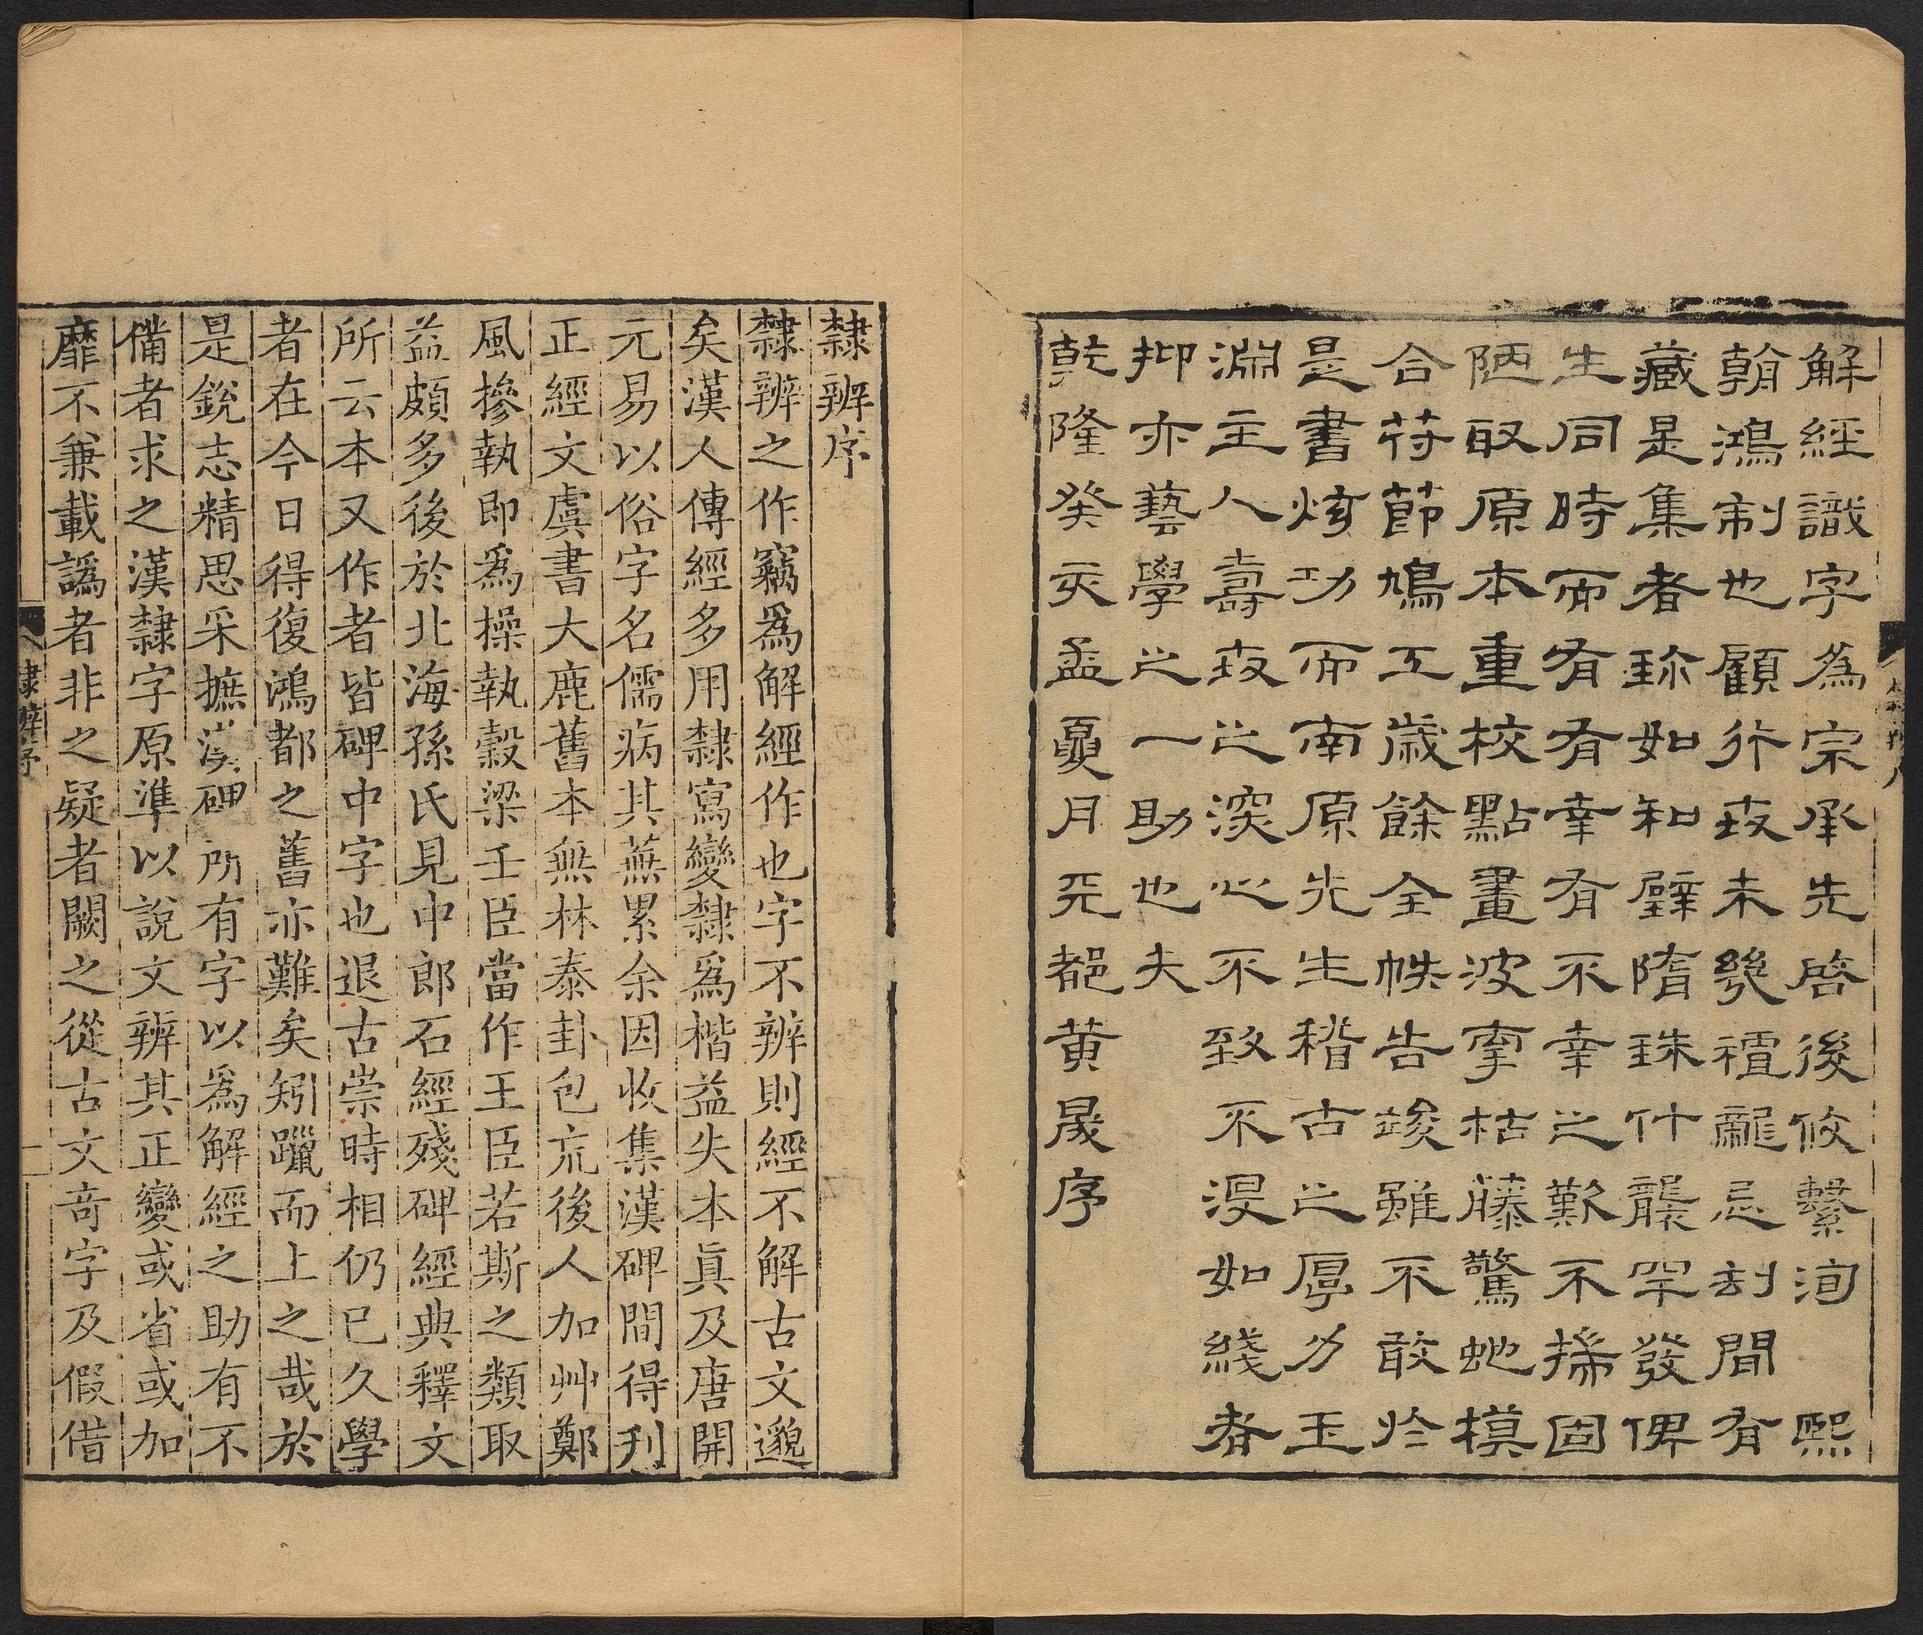 解經識字為宗承先啓後攸繫洵熙
翰鴻制也顧行世未幾禮罷忌刻間有
藏是集者珍如和璧隋珠什襲罕發俾
生同時而有有幸有不幸之歎不揣固
陋取原本重校點畫波挲枯藤驚虵模
合苻節鳩工歲餘全帙告竣雖不敢於
是書炫功而南原先生稽古之厚力玉
淵主人壽世之深心不致不没如綫者
抑亦藝學之一助也夫
乾隆癸亥孟夏月天都黄晟序
隸辨序
隸辨之作竊爲解經作也字不辨則經不解古文邈
矣漢人傳經多用隸寫變隸爲楷益失本眞及唐開
元易以俗字名儒病其蕪累余因收集漢碑間得刋
正經文虞書大鹿舊本無林泰卦包巟後人加艸鄭
風摻執即爲操執穀梁壬臣當作王臣若斯之類取
益頗多後於北海孫氏見中郎石經殘碑經典釋文
所云本又作者皆碑中字也退古崇時相仍已久學
者在今日得復鴻都之舊亦難矣矧躐而上之哉於
是銳志精思采摭漢碑所有字以爲解經之助有不
僃者求之漢隸字原準以說文辨其正變或省或加
靡不兼載譌者非之疑者闕之從古文奇字及假借
隸辨序